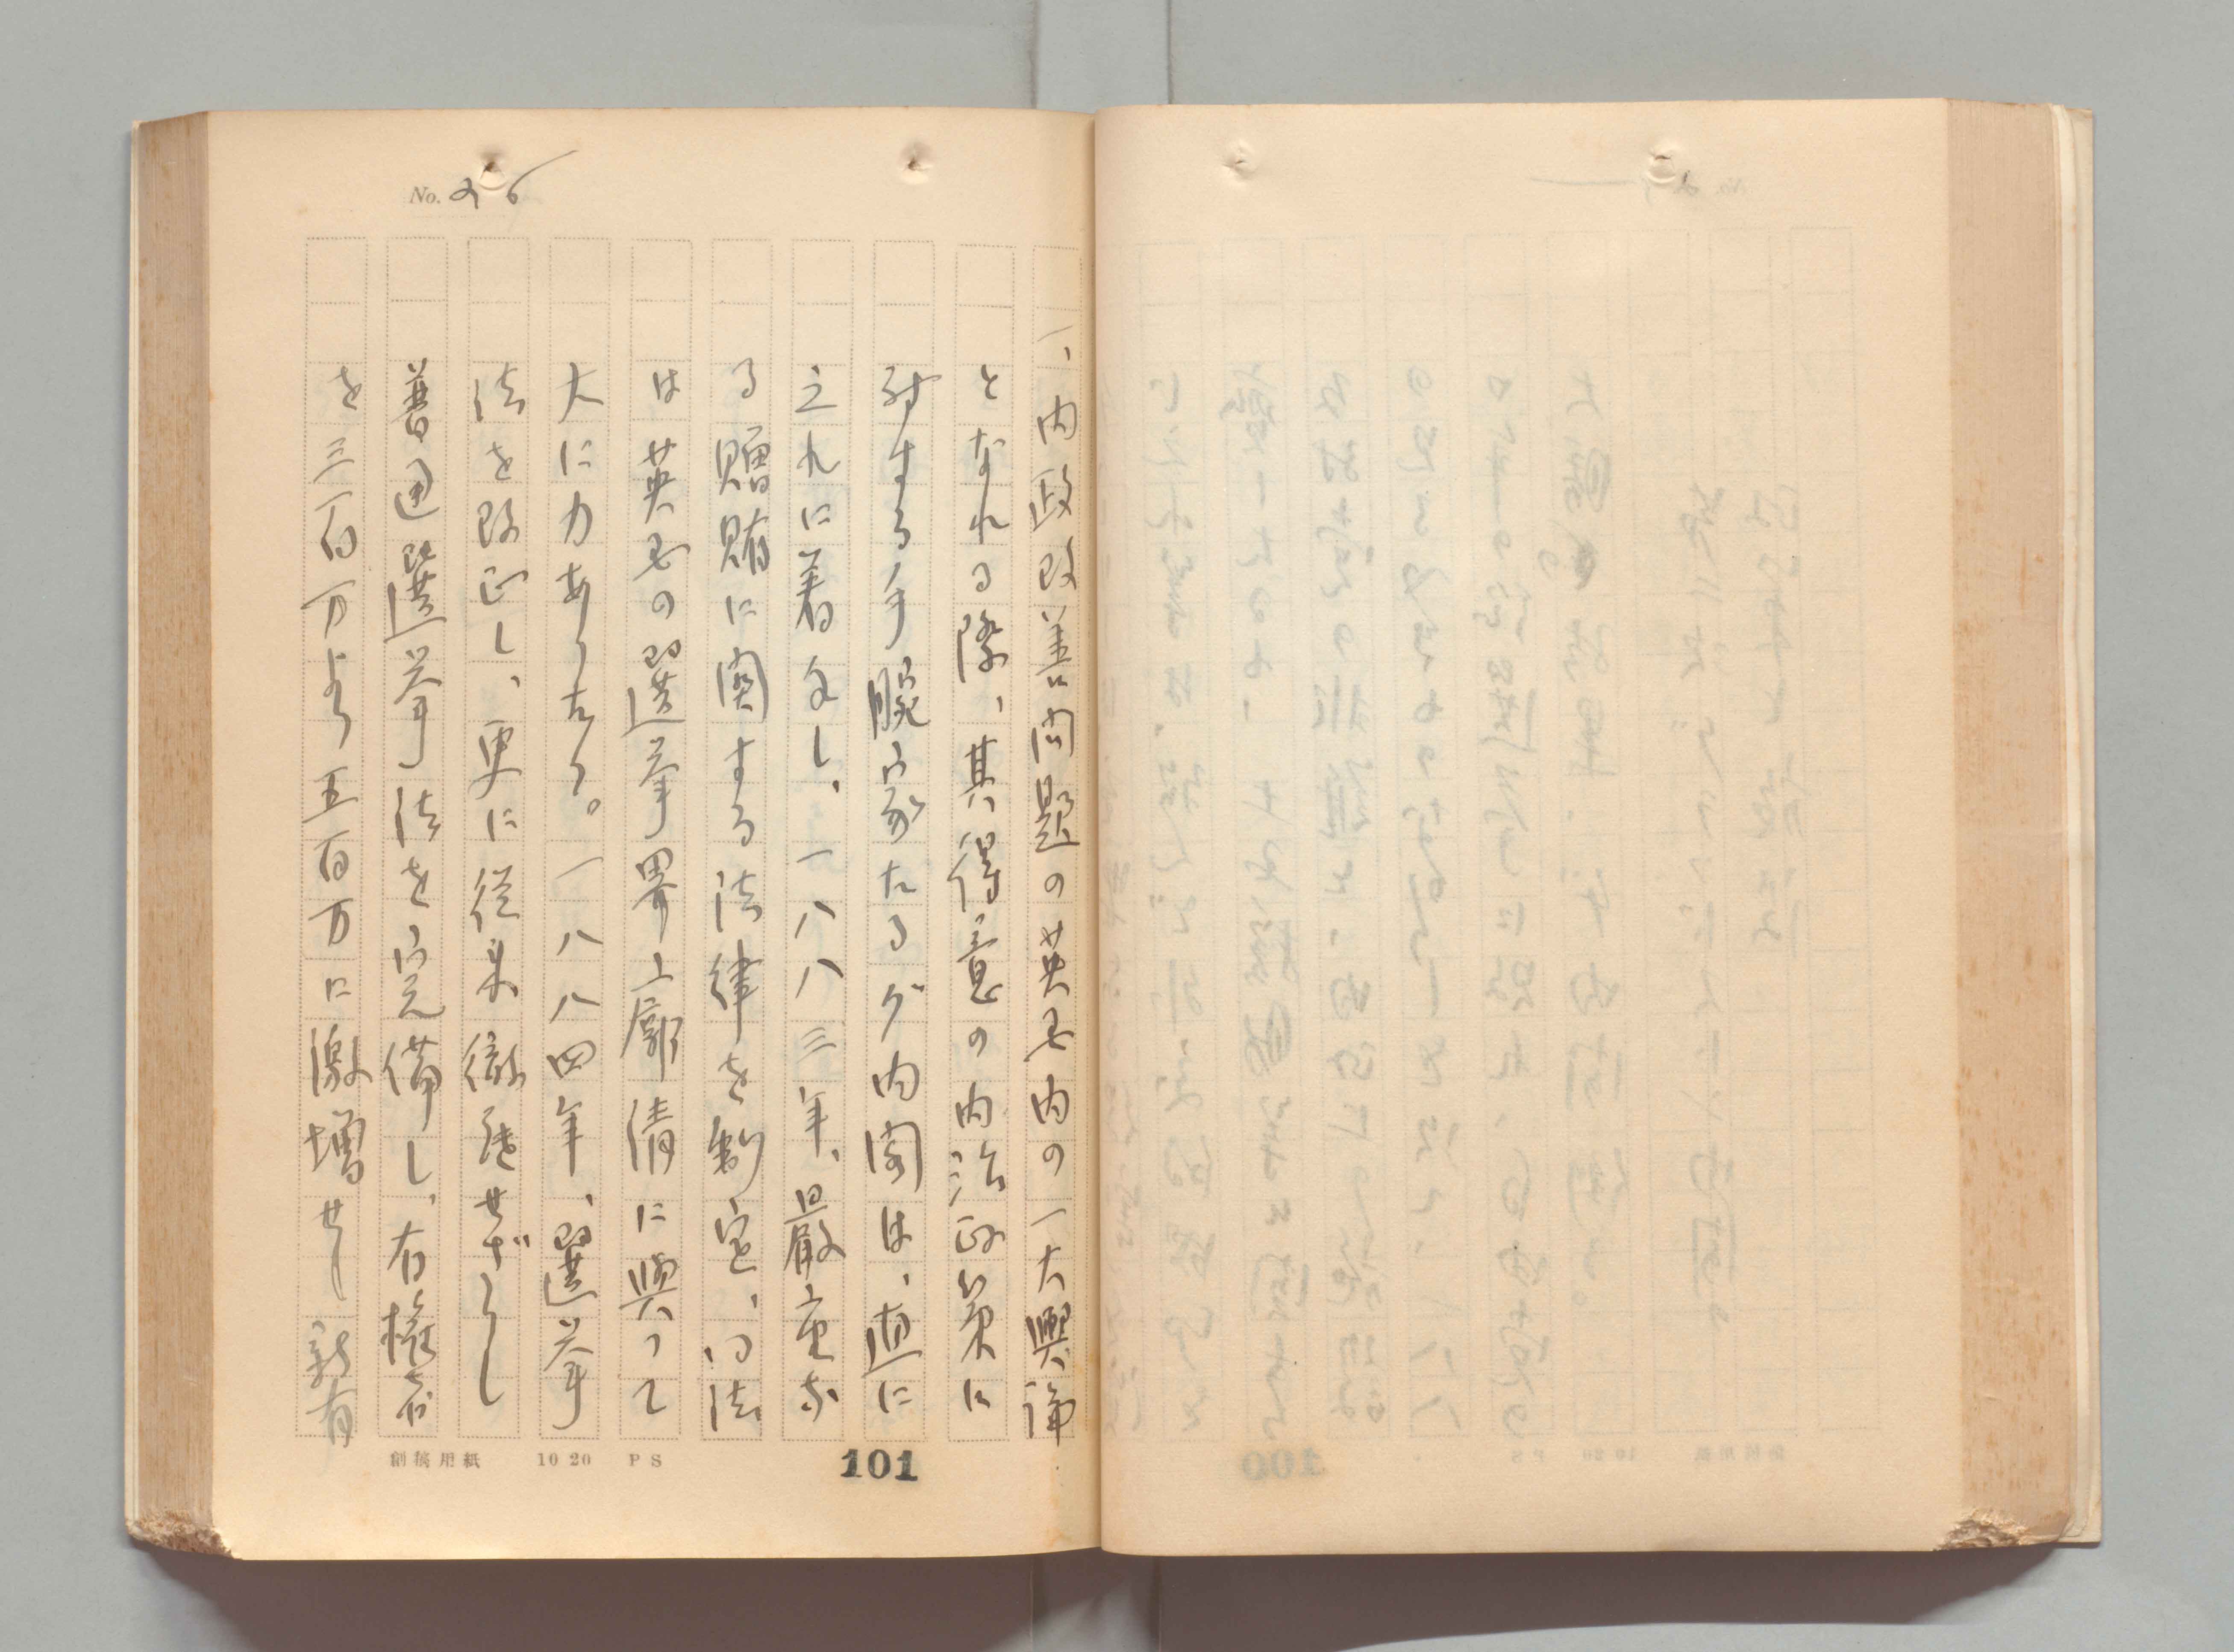 No. 26
一、内政改善問題の英国内の一大輿論
となれる際、其得意の内治政策に
対する手腕家たるグ内閣は、直に
之れに着手し、一八八三年、厳重な
る贈賄に関する法律を制定、同法
は英国の選挙界上廓清に与つて
大に力ありたり。一八八四年、選挙
法を改正し、更に従来徹底せざりし
普通選挙法を完備し、有権者
を三百万より五百万に激増せし 新有
創稿用紙 10 20 PS
101